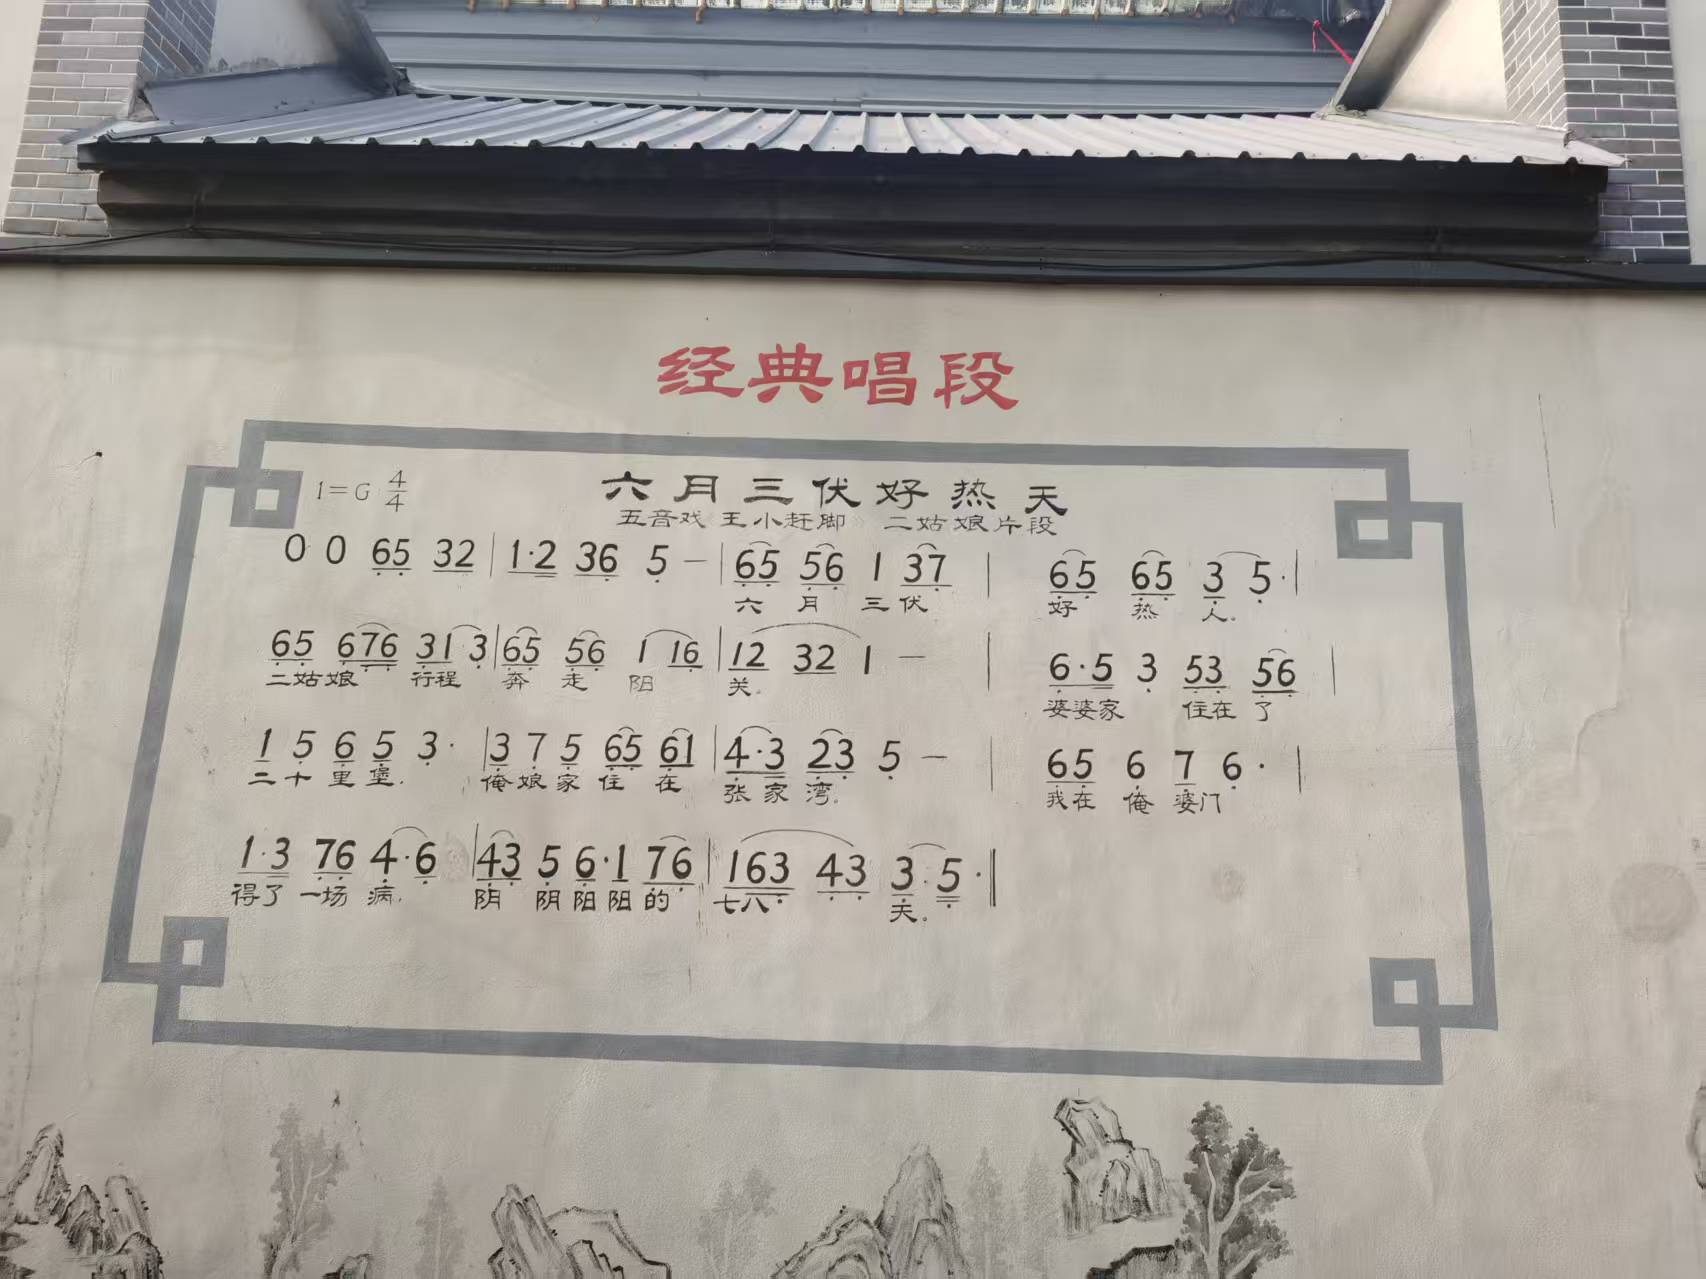 经典唱段
1=G 4/4
六月三伏好热天
五音戏《王小赶脚》 二姑娘片段
0 0 65 32 | 1·2 36 5 — | 65 56 1 37 | 65 65 3 5· |
六 月 三 伏 好 热 人。
65 676 31 3 | 65 56 1 16 | 12 32 1 — | 6·5 3 53 56 |
二姑娘 行程 奔 走 阳 关。 婆婆家 住在 了
1 5 6 5 3· | 3 7 5 65 61 | 4·3 23 5 — | 65 6 7 6· |
二十里堡. 俺娘家住在 张家湾。 我在 俺 婆门
1·3 76 4·6 | 43 5 6·1 76 | 163 43 3·5· ‖
得了 一场 病. 阴 阴阳阳的 七八 天。